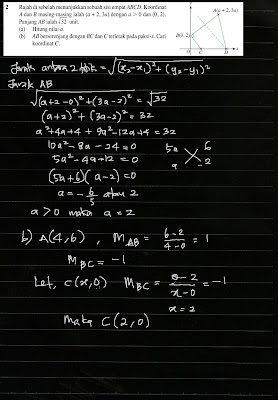 2 Rajah di sebelah menunjukkan sebuah sisi empat ABCD. Koordinat
A dan B masing-masing ialah (a + 2, 3a) dengan a > 0 dan (0, 2).
Panjang AB ialah √32 unit.
(a) Hitung nilai a.
(b) AB berserenjang dengan BC dan C terletak pada paksi-x. Cari
koordinat C.
y
A(a + 2, 3a)
B(0, 2)
O C D x
Jarak antara 2 titik = √(x₂-x₁)² + (y₂-y₁)²
Jarak AB
√(a+2-0)²+(3a-2)² = √32
(a+2)² + (3a-2)² = 32
a²+4a+4 + 9a²-12a+4 = 32
10a² - 8a - 24 = 0
5a² - 4a - 12 = 0
5a 6
a -2
(5a+6)(a-2) = 0
a = -6/5 atau 2
a > 0 maka a = 2
b) A(4,6) , M_AB = 6-2/4-0 = 1
M_BC = -1
Let, C(x,0) M_BC = 0-2/x-0 = -1
x = 2
Maka C(2,0)